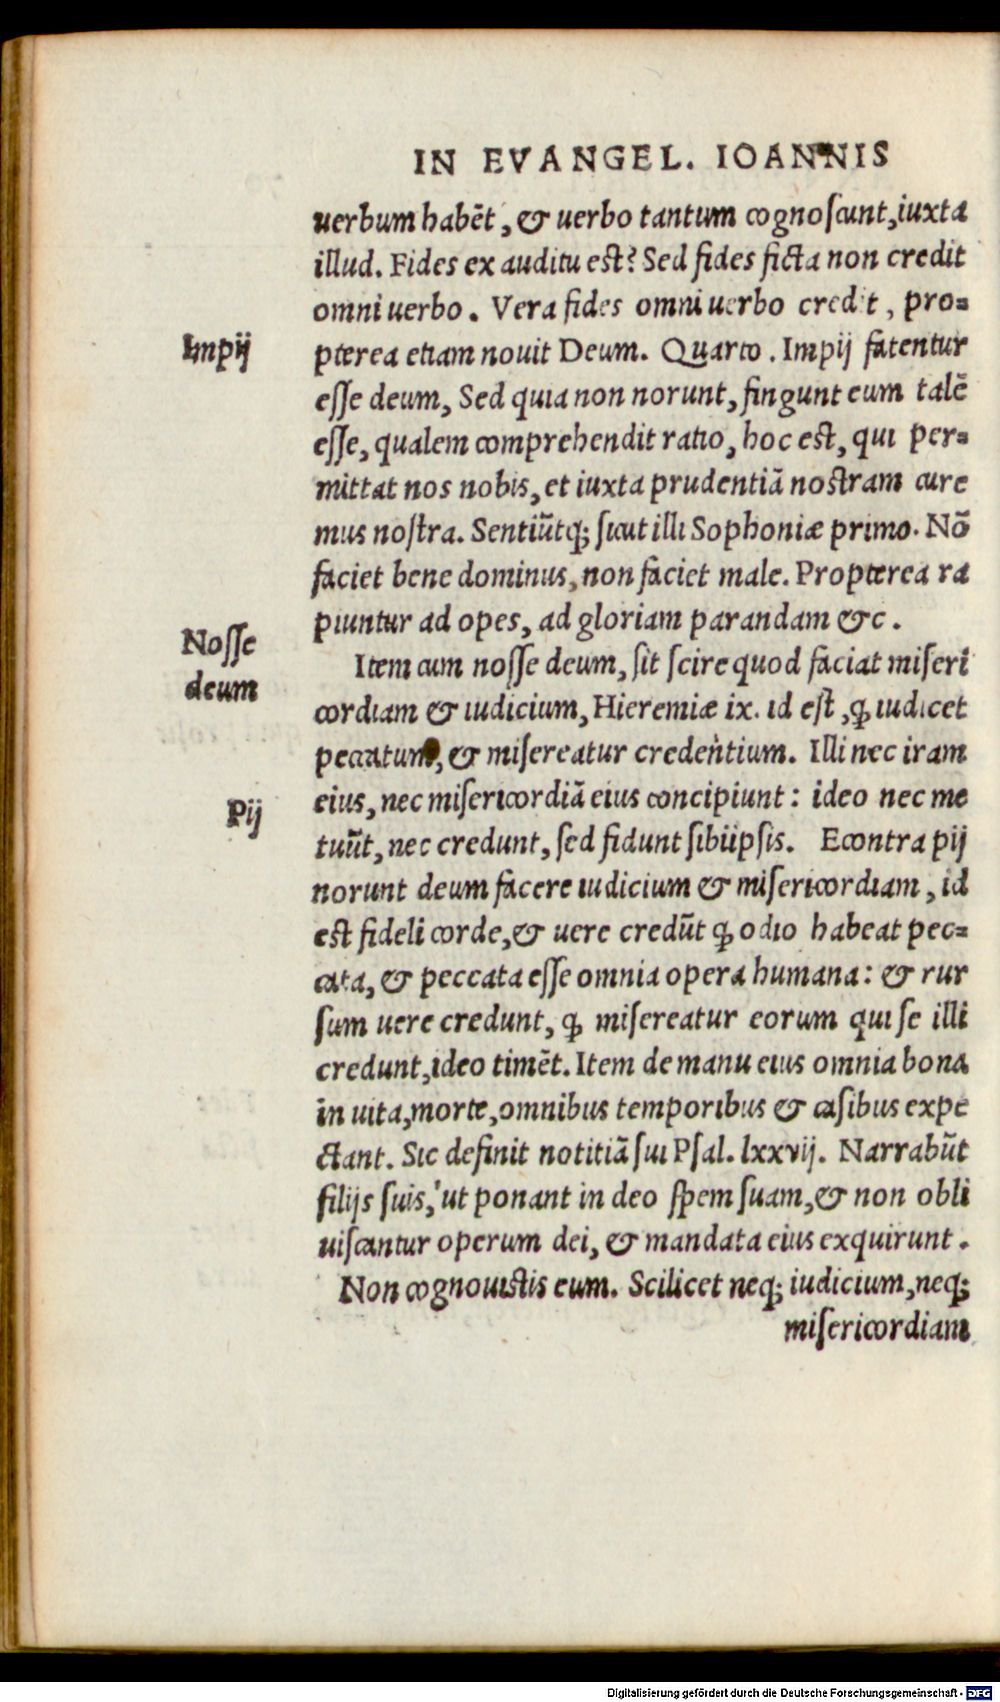 IN EVANGEL. IOANNIS
uerbum habēt, & uerbo tantum cognoſcunt, iuxta
illud. Fides ex auditu est? Sed fides ficta non credit
omni uerbo. Vera fides omni uerbo credit, pro=
Impij
pterea etiam nouit Deum. Quarto. Impij fatentur
eſſe deum, Sed quia non norunt, fingunt eum talē
eſſe, qualem comprehendit ratio, hoc est, qui per=
mittat nos nobis, et iuxta prudentiā nostram cure
mus noſtra. Sentiūtq; ſicut illi Sophoniæ primo. Nō
faciet bene dominus, non faciet male. Propterea ra
piuntur ad opes, ad gloriam parandam &c.
Noſſe
deum
Item cum noſſe deum, ſit ſcire quod faciat miſeri
cordiam & iudicium, Hieremiæ ix. id eſt, ꝙ iudicet
peccatum, & miſereatur credentium. Illi nec iram
Pij
eius, nec miſericordiā eius concipiunt: ideo nec me
tuūt, nec credunt, ſed fidunt ſibiipſis. Econtra pij
norunt deum facere iudicium & miſericordiam, id
est fideli corde, & uere credūt ꝙ odio habeat pec=
cata, & peccata eſſe omnia opera humana: & rur
ſum uere credunt, ꝙ miſereatur eorum qui ſe illi
credunt, ideo timēt. Item de manu eius omnia bona
in uita, morte, omnibus temporibus & caſibus expe
ctant. Sic definit notitiā ſui Pſal. lxxvij. Narrabūt
filijs ſuis, ut ponant in deo ſpem ſuam, & non obli
uiſcantur operum dei, & mandata eius exquirunt.
Non cognouistis eum. Scilicet neq; iudicium, neq;
miſericordiam
Digitalisierung gefördert durch die Deutsche Forschungsgemeinschaft - DFG